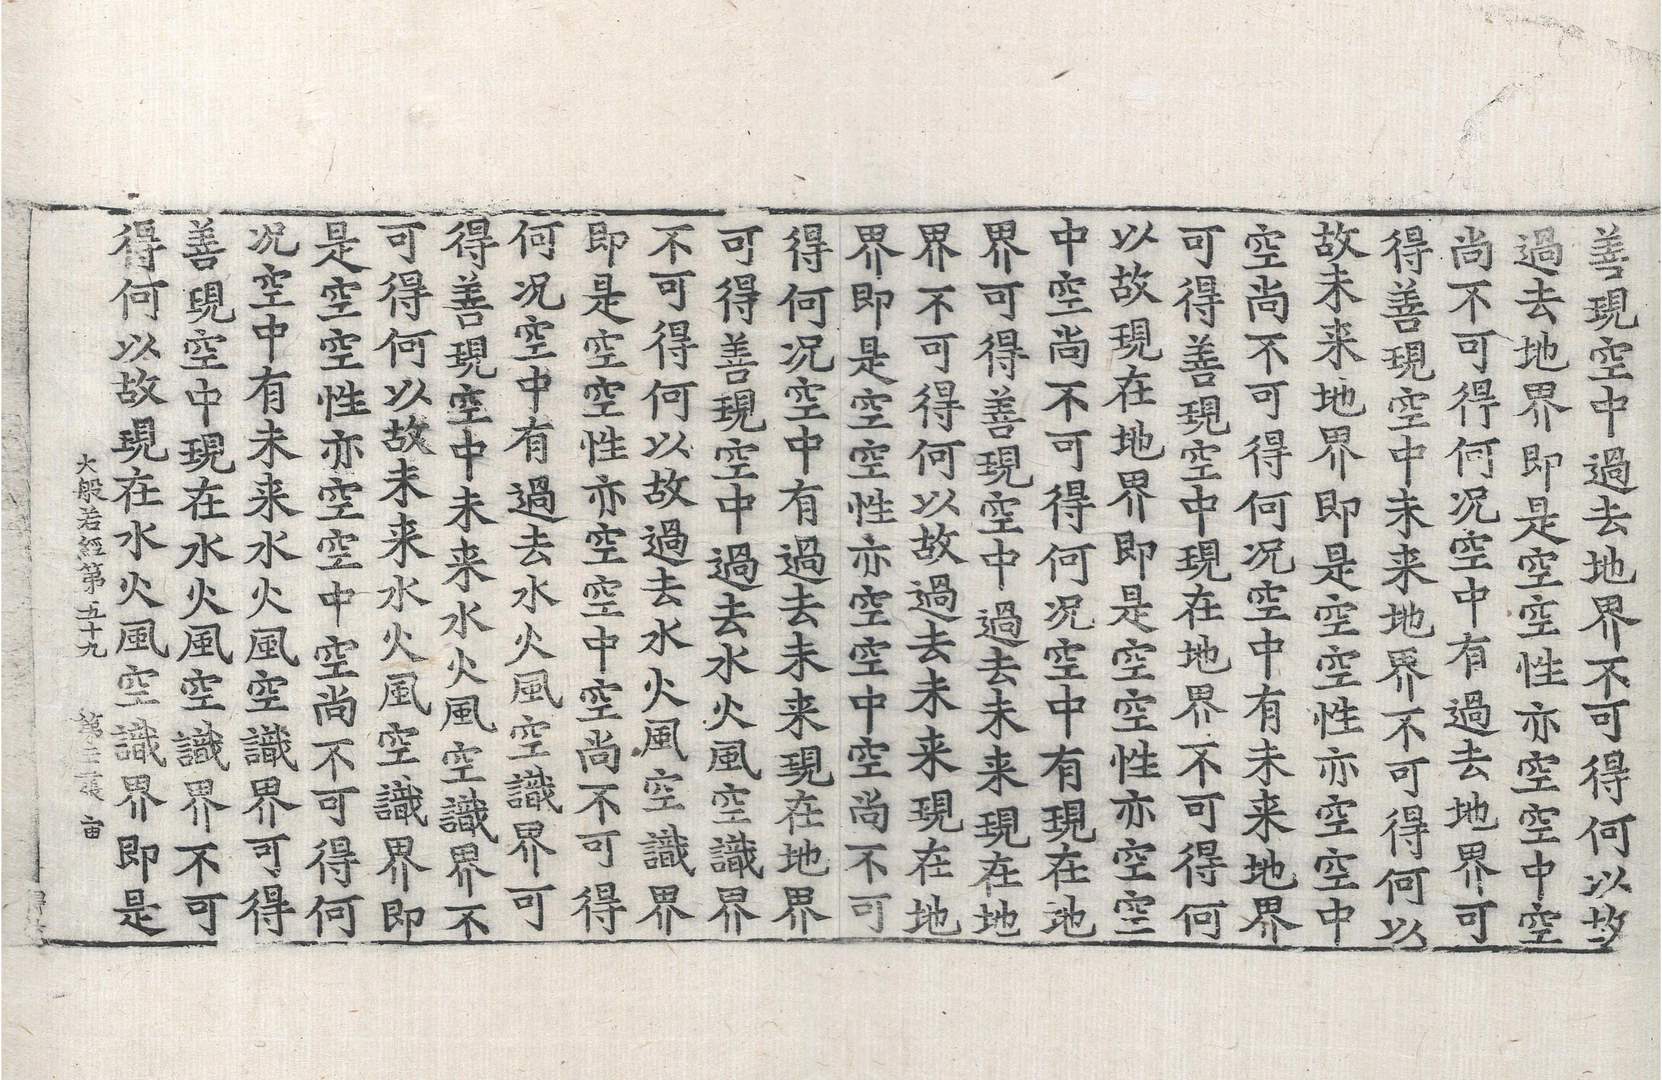 善現空中過去地界不可得何以故
過去地界即是空空性亦空空中空
尚不可得何况空中有過去地界可
得善現空中未来地界不可得何以
故未来地界即是空空性亦空空中
空尚不可得何况空中有未来地界
可得善現空中現在地界不可得何
以故現在地界即是空空性亦空空
中空尚不可得何况空中有現在地
界可得善現空中過去未来現在地
界不可得何以故過去未来現在地
界即是空空性亦空空中空尚不可
得何况空中有過去未来現在地界
可得善現空中過去水火風空識界
不可得何以故過去水火風空識界
即是空空性亦空空中空尚不可得
何况空中有過去水火風空識界可
得善現空中未来水火風空識界不
可得何以故未来水火風空識界即
是空空性亦空空中空尚不可得何
况空中有未来水火風空識界可得
善現空中現在水火風空識界不可
得何以故現在水火風空識界即是
大般若經第五十九 第 張 宙